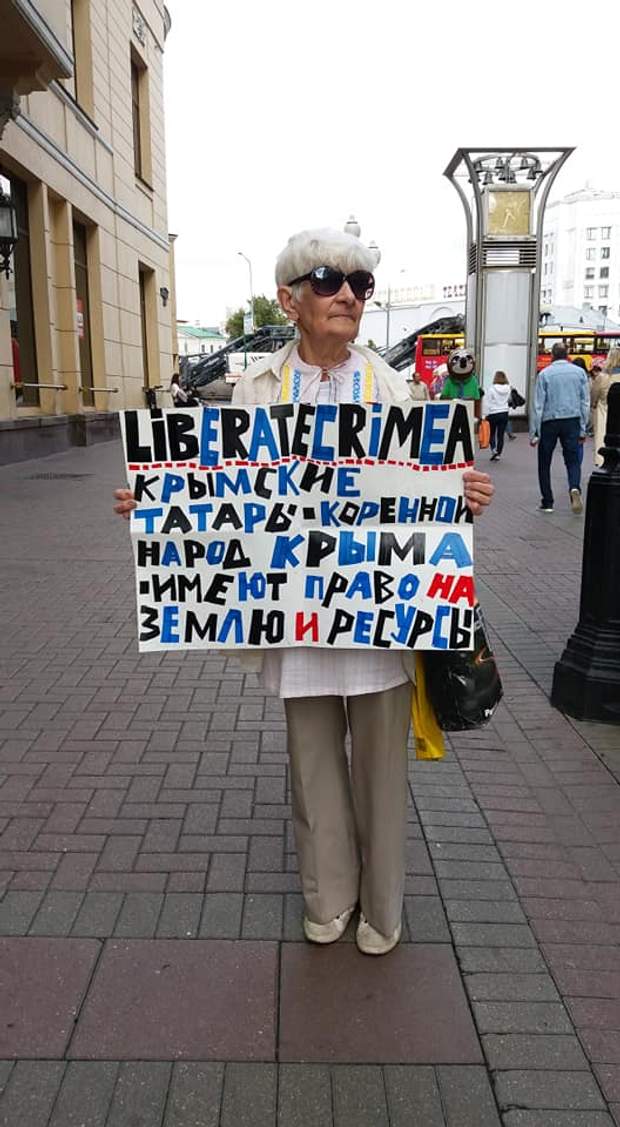 LIBERATECRIMEA
КРЫМСКИЕ
ТАТАРЫ•КОРЕННОЙ
НАРОД КРЫМА
•ИМЕЮТ ПРАВО НА
ЗЕМЛЮ И РЕСУРСЫ